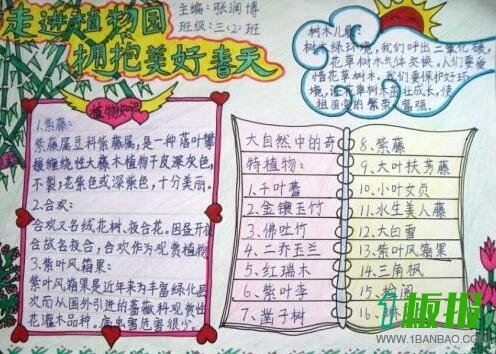 走进植物园
拥抱美好春天
主编：张润博
班级：三(2)班
树木儿歌：
树木绿环境，我们呼出二氧化碳，
花草树木气体交换。人们要爱
惜花草树木，我们要保护好环
境，让花草树木茁壮成长，使
祖国更加繁荣富强。
植物知识
1.紫藤：
紫藤属豆科紫藤属，是一种落叶攀
援缠绕性大藤木植物干皮深灰色，
不裂；花紫色或深紫色，十分美丽。
2.合欢：
合欢又名绒花树、夜合花。因昼开夜
合故名夜合，合欢作为观赏植物
3.紫叶风箱果：
紫叶风箱果是近年来为丰富绿化层
次而从国外引进的蔷薇科观赏性
花灌木品种。病虫害危害很少。
大自然中的奇
特植物：
1.千叶蓍
2.金镶玉竹
3.佛吐竹
4.二乔玉兰
5.红瑞木
6.紫叶李
7.凿子树
8.紫藤
9.大叶扶芳藤
10.小叶女贞
11.水生美人藤
12.大白雪
13.紫叶风箱果
14.三角枫
15.
16.
1板报
WWW.1BANBAO.COM